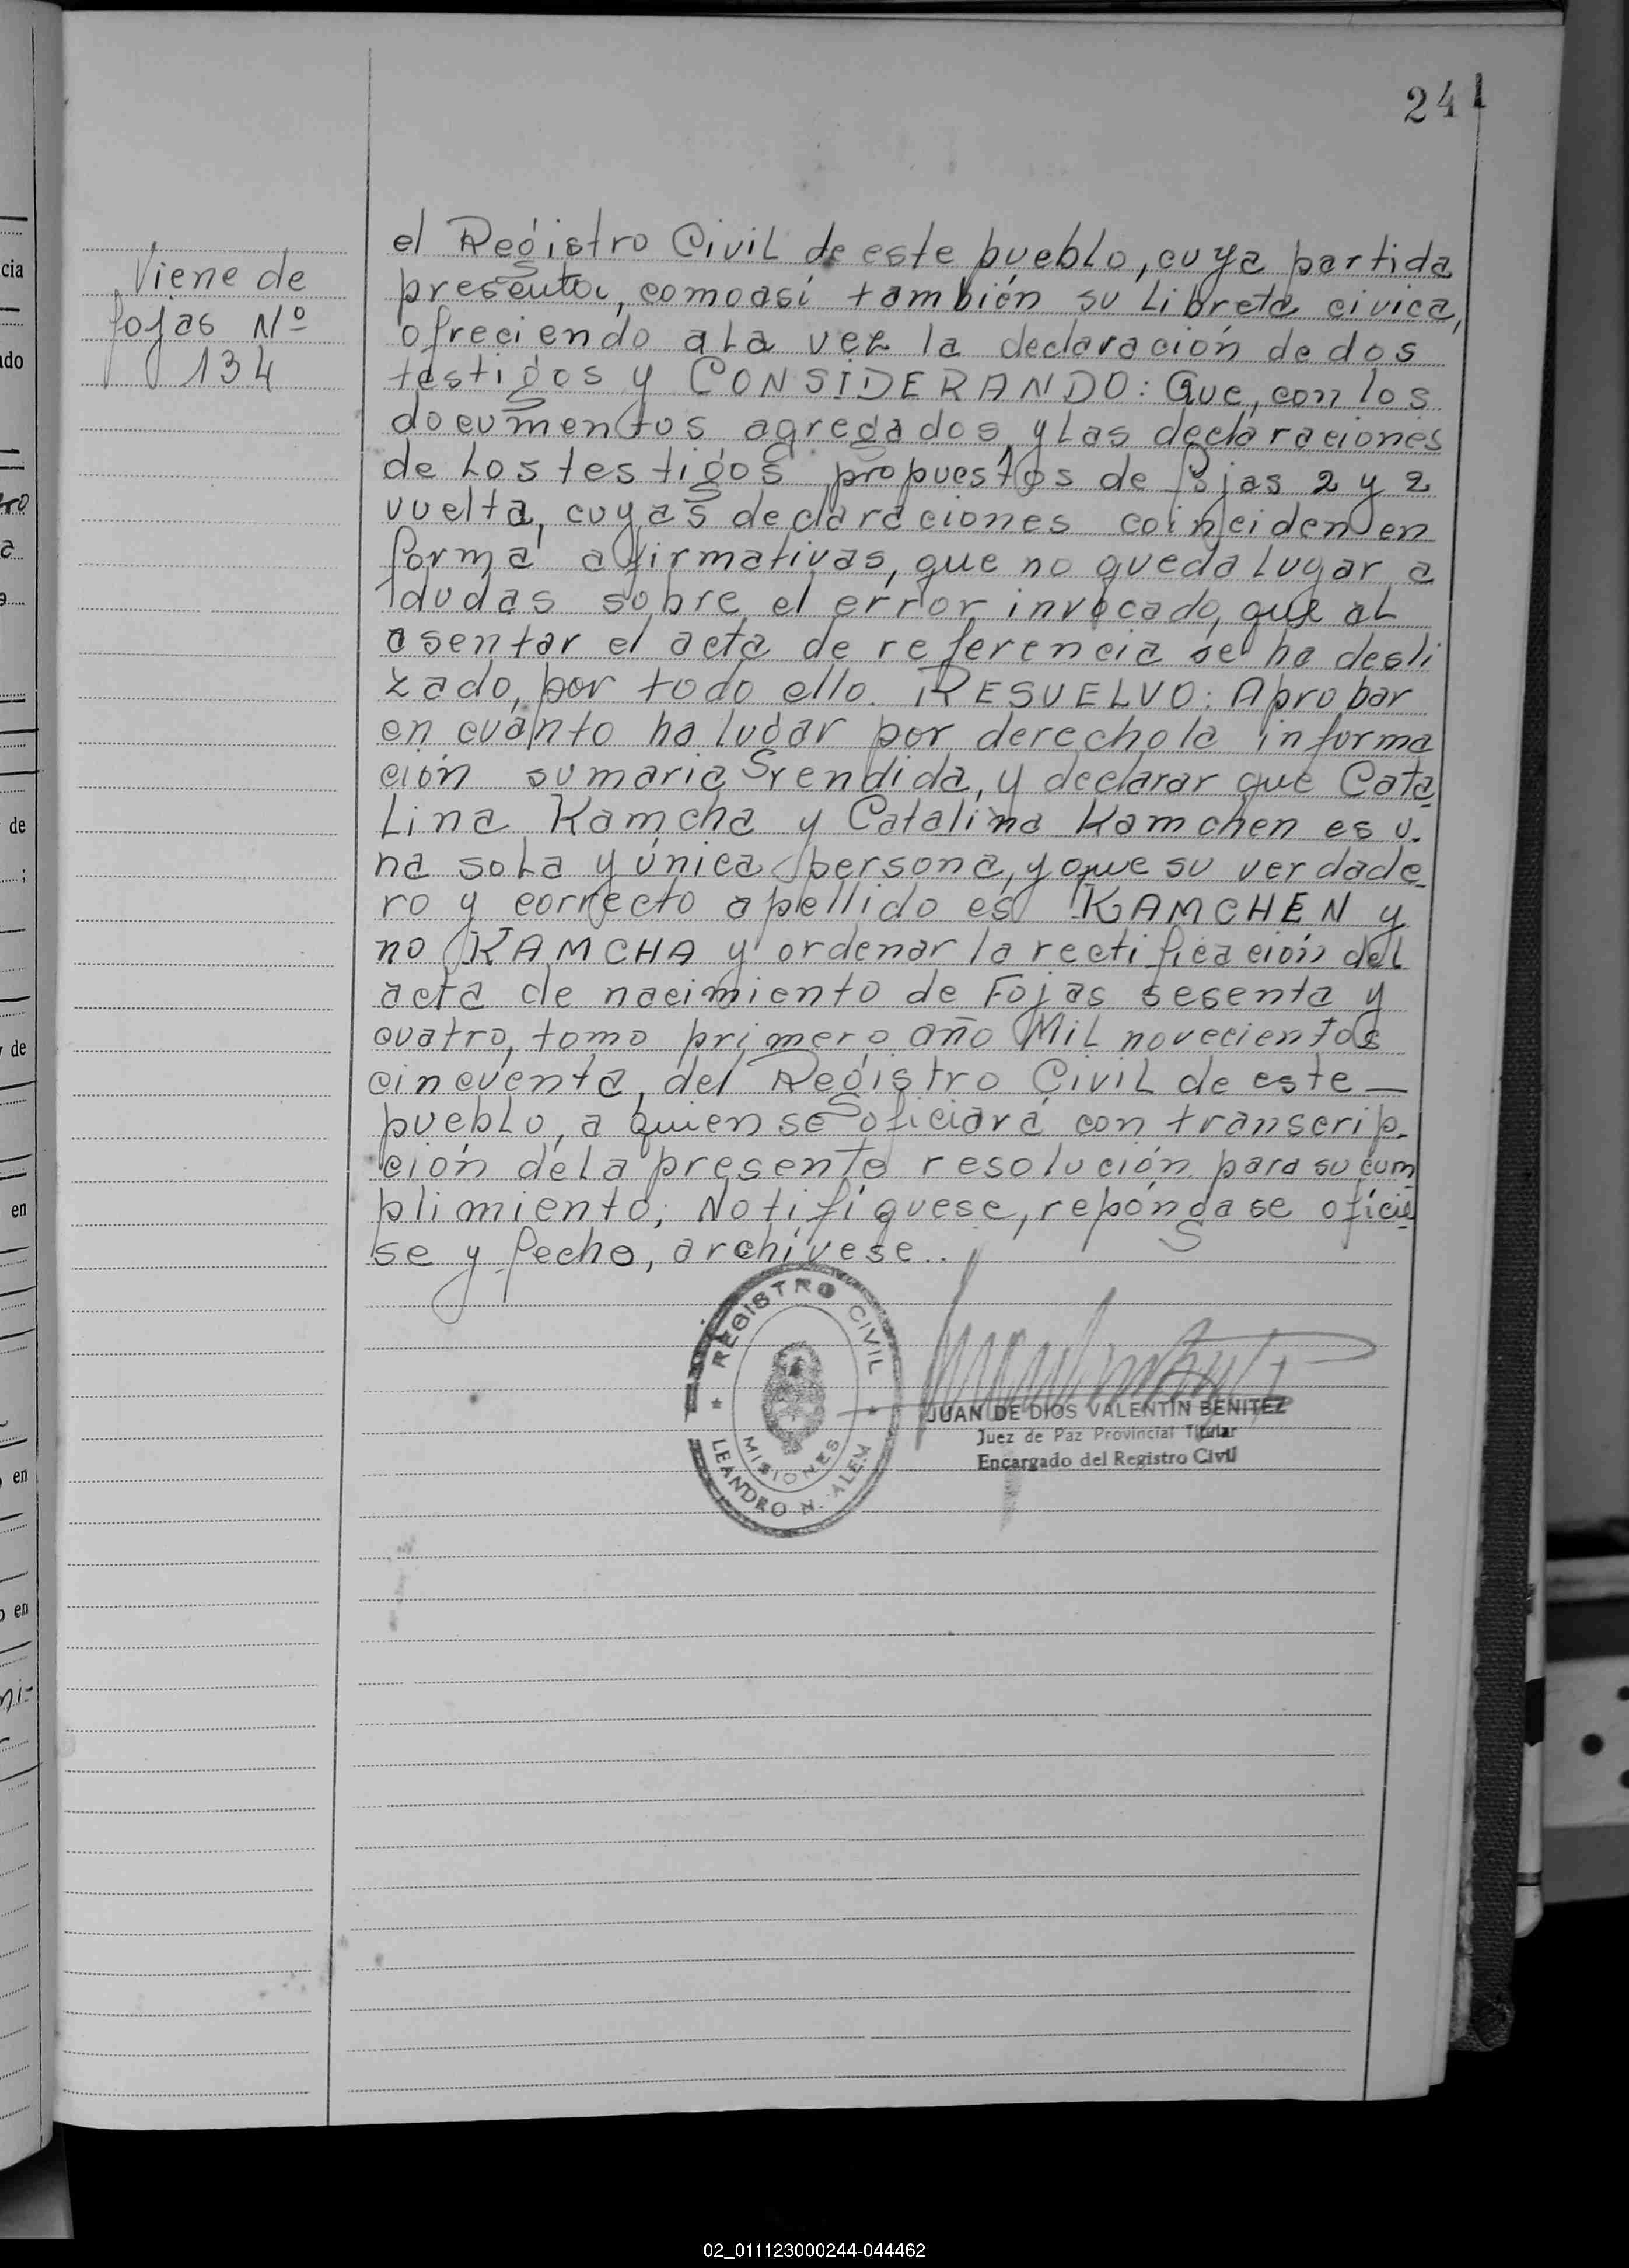 241
Viene de
fojas Nº
134
el Registro Civil de este pueblo, cuya partida
presenta, comoasí también su Libreta civica,
ofreciendo a La vez la declaración de dos
testigos y CONSIDERANDO: Que, con los
documentos agregados y Las declaraciones
de Los testigos propuestos de fojas 2 y 2
vuelta, cuyas declaraciones coinciden en
forma afirmativas, que no queda Lugar a
dudas sobre el error invocado, que al
asentar el acta de referencia se ha desli
zado, por todo ello. RESUELVO: Aprobar
en cuanto ha lugar por derecho la informa
ción sumaria rendida, y declarar que Cata
Lina Kamcha y Catalina Kamchen es u-
na sola y única persona, y que su verdade
ro y correcto apellido es KAMCHEN y
no KAMCHA y ordenar la rectificación del
acta de nacimiento de Fojas sesenta y
cuatro, tomo primero año Mil novecientos
cincuenta, del Registro Civil de este —
pueblo, a quien se oficiará con transcrip-
ción de La presente resolución para su cum
plimiento; Notifíquese, repóngase ofície
se y fecho, archívese..
REGISTRO CIVIL
MISIONES
LEANDRO N. ALEM
JUAN DE DIOS VALENTIN BENITEZ
Juez de Paz Provincial Titular
Encargado del Registro Civil
cia
ado
de
de
en
en
en
02_011123000244-044462